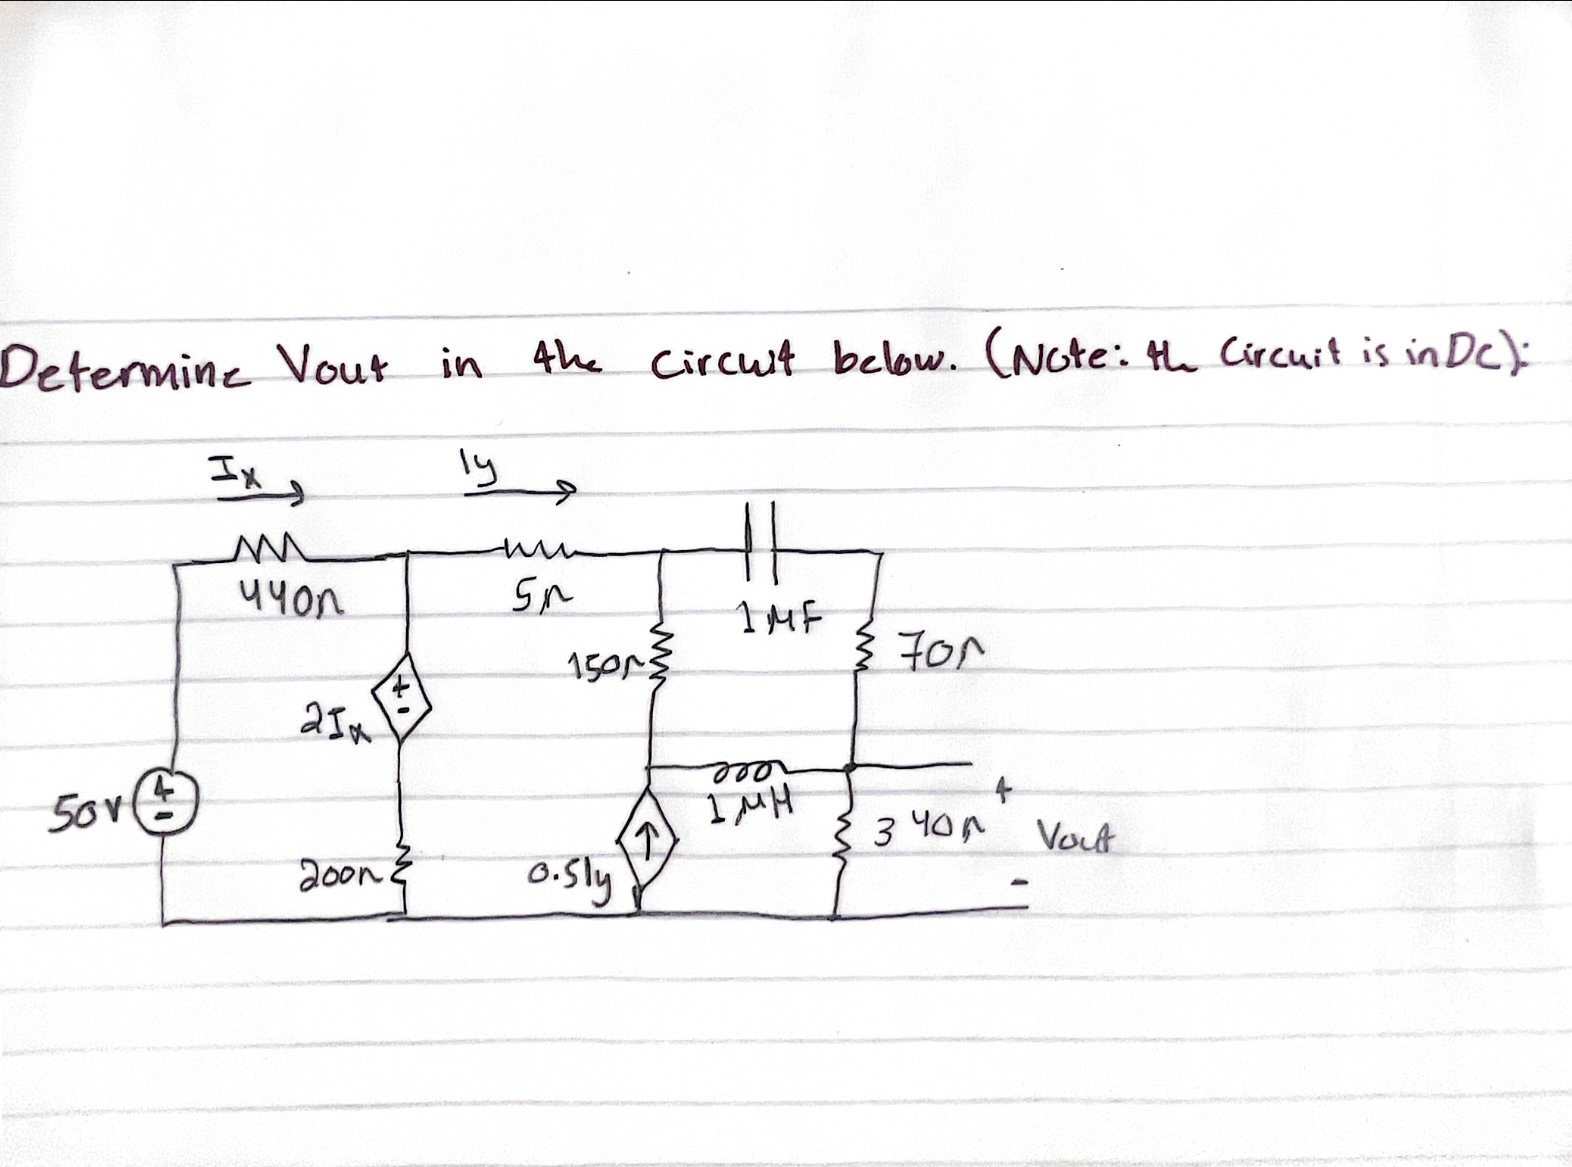 Determine Vout in the circuit below. (Note: the Circuit is in DC):
Ix
Iy
440Ω
5Ω
1μF
150Ω
70Ω
+
-
2Ix
1μH
50V
+
-
340Ω
+
Vout
-
200Ω
0.5Iy